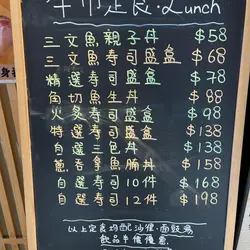 午市定食·Lunch
三文魚親子丼 $58
三文魚壽司盛盒 $68
精選壽司盛盒 $78
角切魚生丼 $88
火炙壽司盛盒 $98
特選壽司盛盒 $138
自選三色丼 $138
蔥吞拿魚腩丼 $158
自選壽司10件 $168
自選壽司12件 $198
以上定食均配沙律·麵豉湯
飲品半價優惠